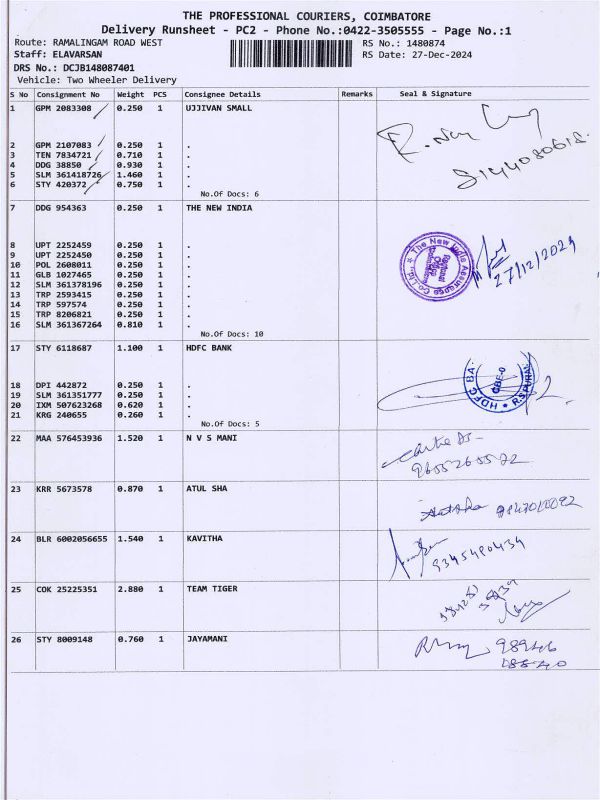 THE PROFESSIONAL COURIERS, COIMBATORE
Delivery Runsheet - PC2 - Phone No.:0422-3505555 - Page No.:1
Route: RAMALINGAM ROAD WEST RS No.: 1480874
Staff: ELAVARSAN RS Date: 27-Dec-2024
DRS No.: DCJB148087401
Vehicle: Two Wheeler Delivery
S No Consignment No Weight PCS Consignee Details Remarks Seal & Signature
1 GPM 2083308 0.250 1 UJJIVAN SMALL
2 GPM 2107083 0.250 1 .
3 TEN 7834721 0.710 1 .
4 DDG 38850 0.930 1 .
5 SLM 361418726 1.460 1 .
6 STY 420372 0.750 1 .
No.Of Docs: 6
8144080618
7 DDG 954363 0.250 1 THE NEW INDIA
8 UPT 2252459 0.250 1 .
9 UPT 2252450 0.250 1 .
10 POL 2608011 0.250 1 .
11 GLB 1027465 0.250 1 .
12 SLM 361378196 0.250 1 .
13 TRP 2593415 0.250 1 .
14 TRP 597574 0.250 1 .
15 TRP 8206821 0.250 1 .
16 SLM 361367264 0.810 1 .
No.Of Docs: 10
The New India Assurance Co. Ltd.
27/12/2024
17 STY 6118687 1.100 1 HDFC BANK
18 DPI 442872 0.250 1 .
19 SLM 361351777 0.250 1 .
20 IXM 507623268 0.620 1 .
21 KRG 240655 0.260 1 .
No.Of Docs: 5
HDFC BA
R.S.PURAM
22 MAA 576453936 1.520 1 N V S MANI
9655265572
23 KRR 5673578 0.870 1 ATUL SHA
24 BLR 6002056655 1.540 1 KAVITHA
9345490434
25 COK 25225351 2.880 1 TEAM TIGER
26 STY 8009148 0.760 1 JAYAMANI